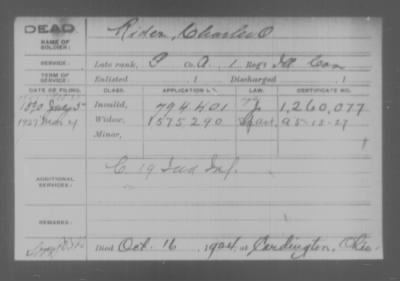 DEAD.
NAME OF SOLDIER: Rider, Charles O
SERVICE: Late rank, P Co. A, 1 Reg't Ill Cav
TERM OF SERVICE: Enlisted , 1 Discharged , 1
DATE OF FILING. CLASS. APPLICATION NO. LAW. CERTIFICATE NO.
1890 July 5 Invalid, 794.401 J 1,260,077
1927 Widow, 1575290 A 5-13-27
Minor,
ADDITIONAL SERVICES: C. 19 Ind Inf.
REMARKS:
Died Oct. 16, at Cardington, Ohio